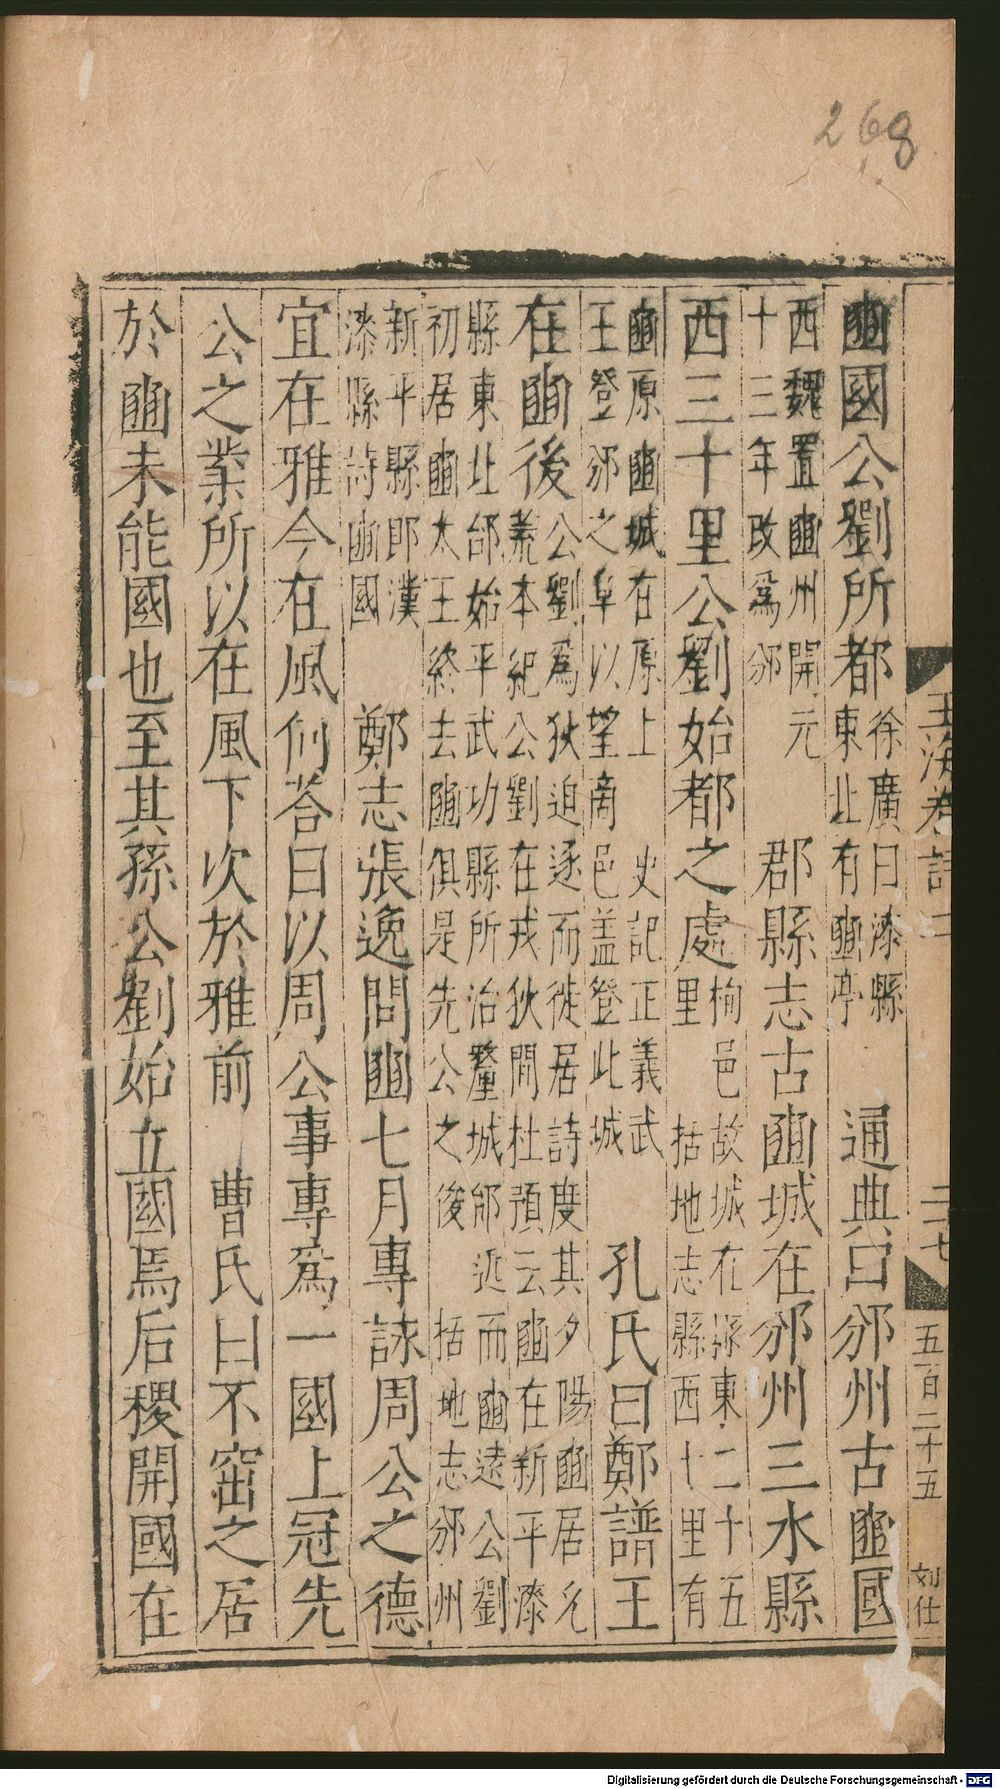 268
玉海卷詩一 二十七 五百二十五 刘仕
豳國公劉所都
徐廣曰漆縣
東北有豳亭
通典曰邠州古豳國
西魏置豳州開元
十三年改爲邠
郡縣志古豳城在邠州三水縣
西三十里公劉始都之處
栒邑故城在縣東二十五
里 括地志縣西十里有
豳原豳城在原上 史記正義武
王登邠之阜以望商邑蓋登此城
孔氏曰鄭譜王
在豳後
公劉爲狄迫逐而徙居詩度其夕陽豳居允
荒本紀公劉在戎狄間杜預云豳在新平漆
縣東北邰始平武功縣所治釐城邰近而豳遠公劉
初居豳太王終去豳俱是先公之後 括地志邠州
新平縣即漢
漆縣詩豳國
鄭志張逸問豳七月專詠周公之德
宜在雅今在風何答曰以周公事專爲一國上冠先
公之業所以在風下次於雅前 曹氏曰不窋之居
於豳未能國也至其孫公劉始立國焉后稷開國在
Digitalisierung gefördert durch die Deutsche Forschungsgemeinschaft - DFG